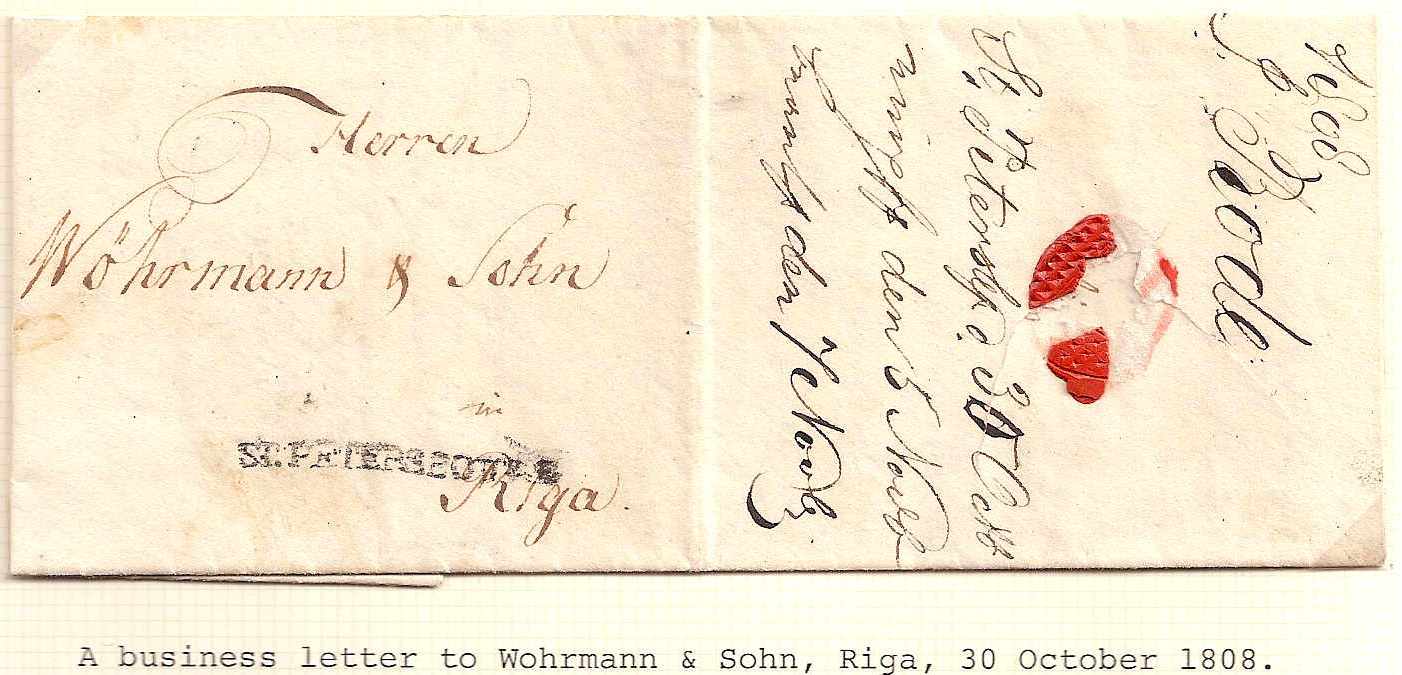 Herren
Wöhrmann & Sohn
in
ST. PETERSBOURG
Riga.
1808
J. J. Bode
St. Petersb. 30 Octb
empf den 5 Novb
beantw den 7 Novb
A business letter to Wohrmann & Sohn, Riga, 30 October 1808.